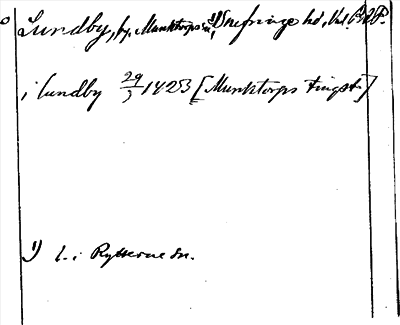 Lundby, by, Munktorps sn, 1) Snefringe hd, Vml.
i lundby 29/3 1423 [Munktorps tingst.]
1) l. i Rytterne sn.